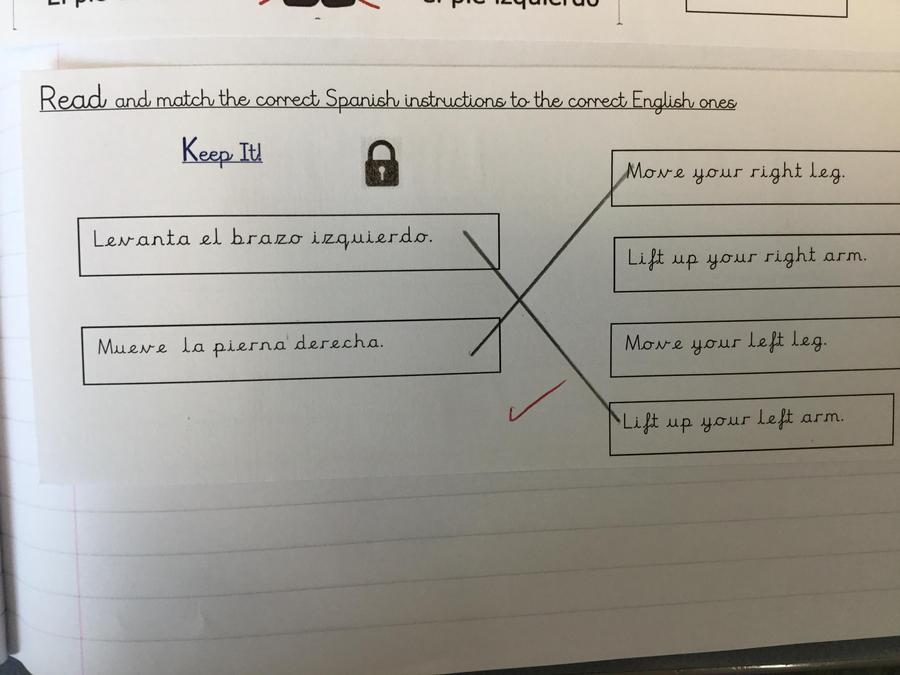 el pie izquierdo
Read and match the correct Spanish instructions to the correct English ones
Keep It!
Levanta el brazo izquierdo.
Mueve la pierna derecha.
Move your right leg.
Lift up your right arm.
Move your left leg.
Lift up your left arm.